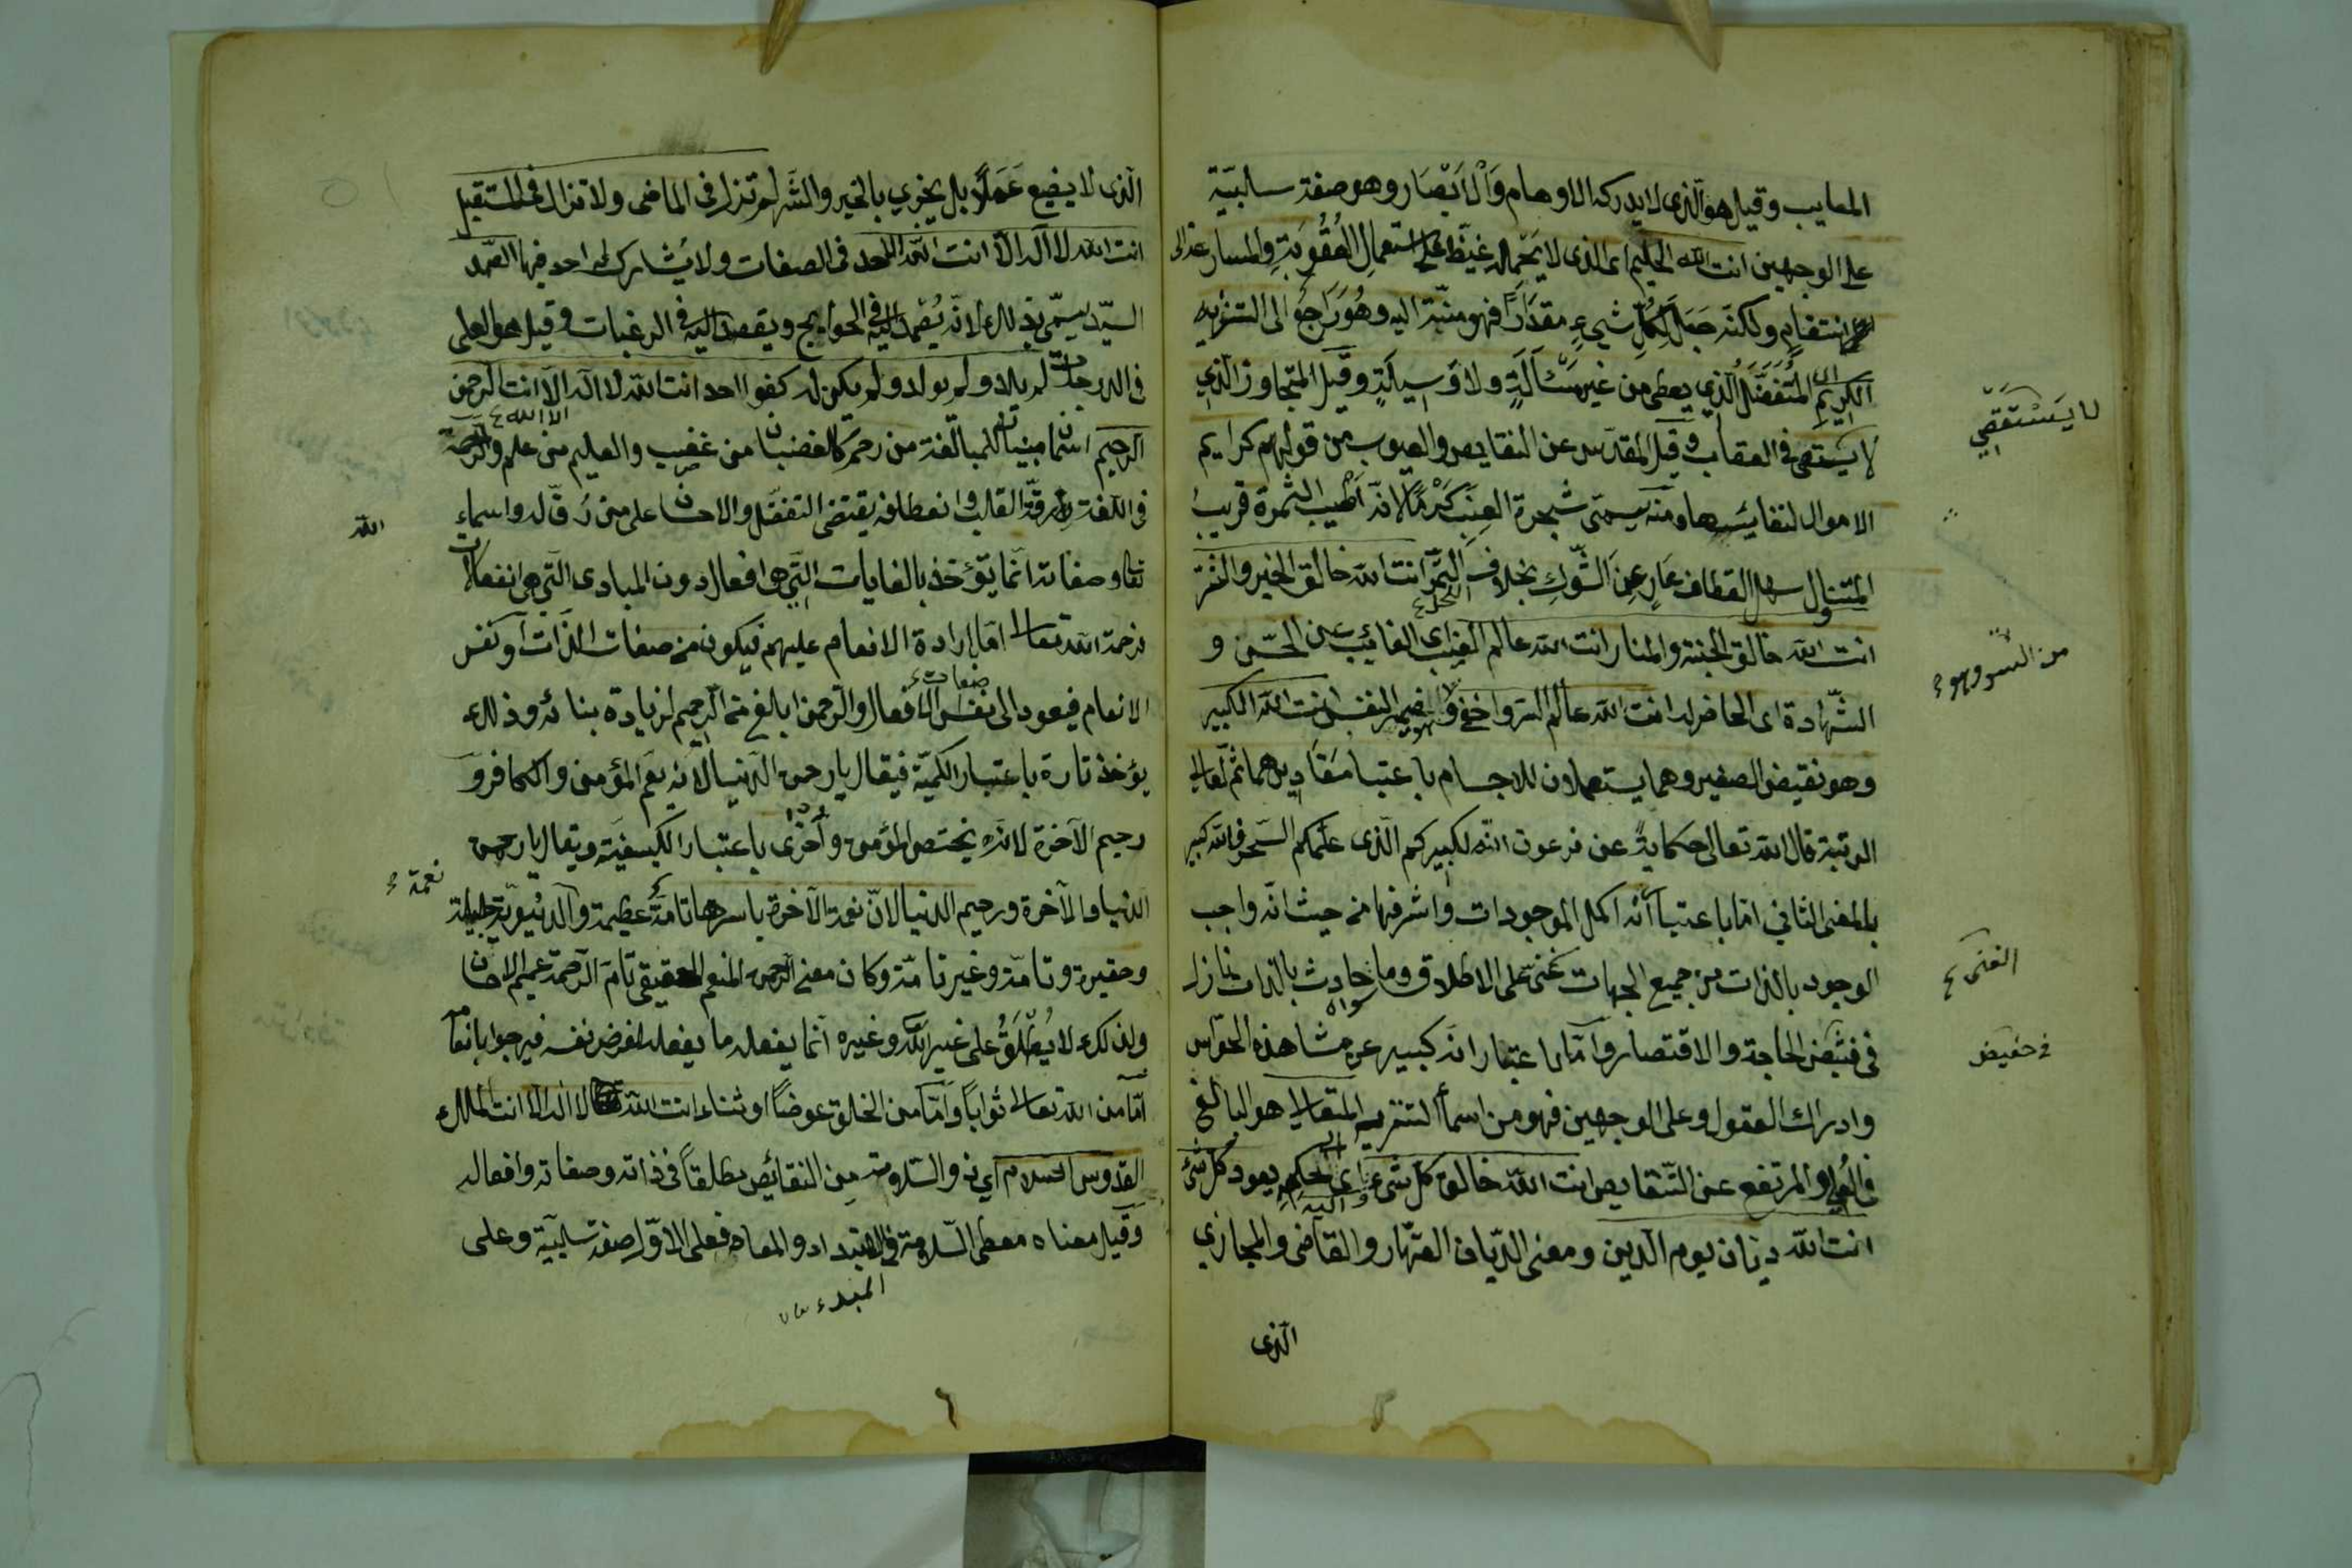 المعايب وقيل هو الّذى لا يدركه الاوهام وَالْاَبْصَار وهو صفة سالبيّة
على الوجهين انت الله الحليم اى الذى لا يَحْمله غيظ على استعمال العُقُوبَةِ والمسارعة الى
انتقام ولكنّه جَعَلَ لِكُلِّ شيءٍ مقدَارًا فهو منبّه اليه وهُوَ رَاجع الى التنزيه
الكَرِيمِ اى المُتَفَضّل الّذي يعطى من غير مَسْأَلَةٍ ولا وَسِيلَةٍ وقيل المتجاوز الّذي
لا يستقصى فى العقاب وقيل المقدّس عن النقايص والعيوب من قولهم كرايم
لا يَسْتَقْصِي
الاموال لنفايسها ومنه يسمّى شجرة العِنَب كَرْمًا لانّه اَطْيَب الثمرة قريب
المتناول سهل القطاف عَارٍ عن الشّوكِ بخلاف النخل انت الله خالق الخير والشر
انت الله خالق الجنة والنار انت الله عالم الغيب اى الغائب عن الحسّ و
الشّهادة اى الحاضر له انت الله عالم السّر واخفى وهو ضمير النفس انت الله الكبير
من السّر وهو
وهو نقيض الصغير وهما يستعملان للاجسام باعتبار مقاديرهما ثم لعالى
الرتبة قال الله تعالى حكاية عن فرعون انّه لكبيركم الّذى علّمكم السّحر فالله كبير
بالمعنى الثانى امّا باعتبار أنّه اكمل الموجودات واشرفها من حيث انّه واجب
الوجود بالذات من جميع الجهات غنى على الاطلاق وما سواه حادث بالذات نازل
الغنى
فى حضيض الحاجة والاقتصار وامّا باعتبار انّه كبير عن مشاهدة الحوّاس
فى حضيض
وادراك العقول وعلى الوجهين فهو من اسمأ التنزيه المتعالى هو البالغ
فى العُلى والمرتفع عن النّقايص انت الله خالق كل شىء اى الحكيم واليه يعود كل شئ
انت الله ديّان يوم الدّين ومعنى الدّيّان القهّار والقاضى والمجازي
الّذى
الّذى لا يضيع عَمَلًا بل يجزي بالخير والشّر لم تزل فى الماضى ولا تزال فى المستقبل
انت الله لا اله الّا انت الله الاحد فى الصفات ولا يشاركه احد فيها الصّمد
السيّد سمّى بذلك لانّه يُصْمَد اليه فى الحوايج ويقصد اليه فى الرغبات وقيل هو العلى
فى الدرجات لم يلد ولم يولد ولم يكن له كفوا احد انت الله لا اله الّا انت الرحمن
الرحيم اسمان مبنيان للمبالغة من رحم كالغضبان من غضب والعليم من علم والرحمة
فى اللّغة رقّة القلب وانعطافه يقتضى التفضّل والاحسان على من رُقّ له واسماء
الله
تعالى وصفاته انّما يؤخذ بالغايات الّتي هى افعال دون المبادى الّتي هى انفعالات
فرحمة الله تعالى امّا ارادة الانعام عليهم فيكون من صفات الذات او نفس
الانعام فيعود الى صفات الافعال والرّحمن ابلغ من الرّحيم لزيادة بنائه وذلك
يؤخذ تارة باعتبار الكميّة فيقال يا رحمن الدّنيا لانّه يعمّ المؤمن والكافر و
رحيم الآخرة لانّه يختص المؤمن وأخرى باعتبار الكيفيّة ويقال يا رحمن
الدّنيا والآخرة ورحيم الدّنيا لانّ نعمة الآخرة باسرها تامّة عظيمة والدّنيويّة جليلة
نعمة
وحقيرة وتامّة وغير تامّة وكان معنى الرحمن المنعم الحقيقى تامّ الرّحمة عميم الاحسان
ولذلك لا يُطْلَقُ على غير الله وغيره انّما يفعل ما يفعله لغرض نفسه
امّا من الله تعالى ثواباً وامّا من الخلق عوضاً او ثناء انت الله لا اله الّا انت الملك
القدّوس السلام اي ذو السّلامة من النقائص مطلقاً فى ذاته وصفاته وافعاله
وقيل معناه معطى السّلامة فى المبدء والمعاد فعلى الاوّل صفة سلبيّة وعلى
المبدء